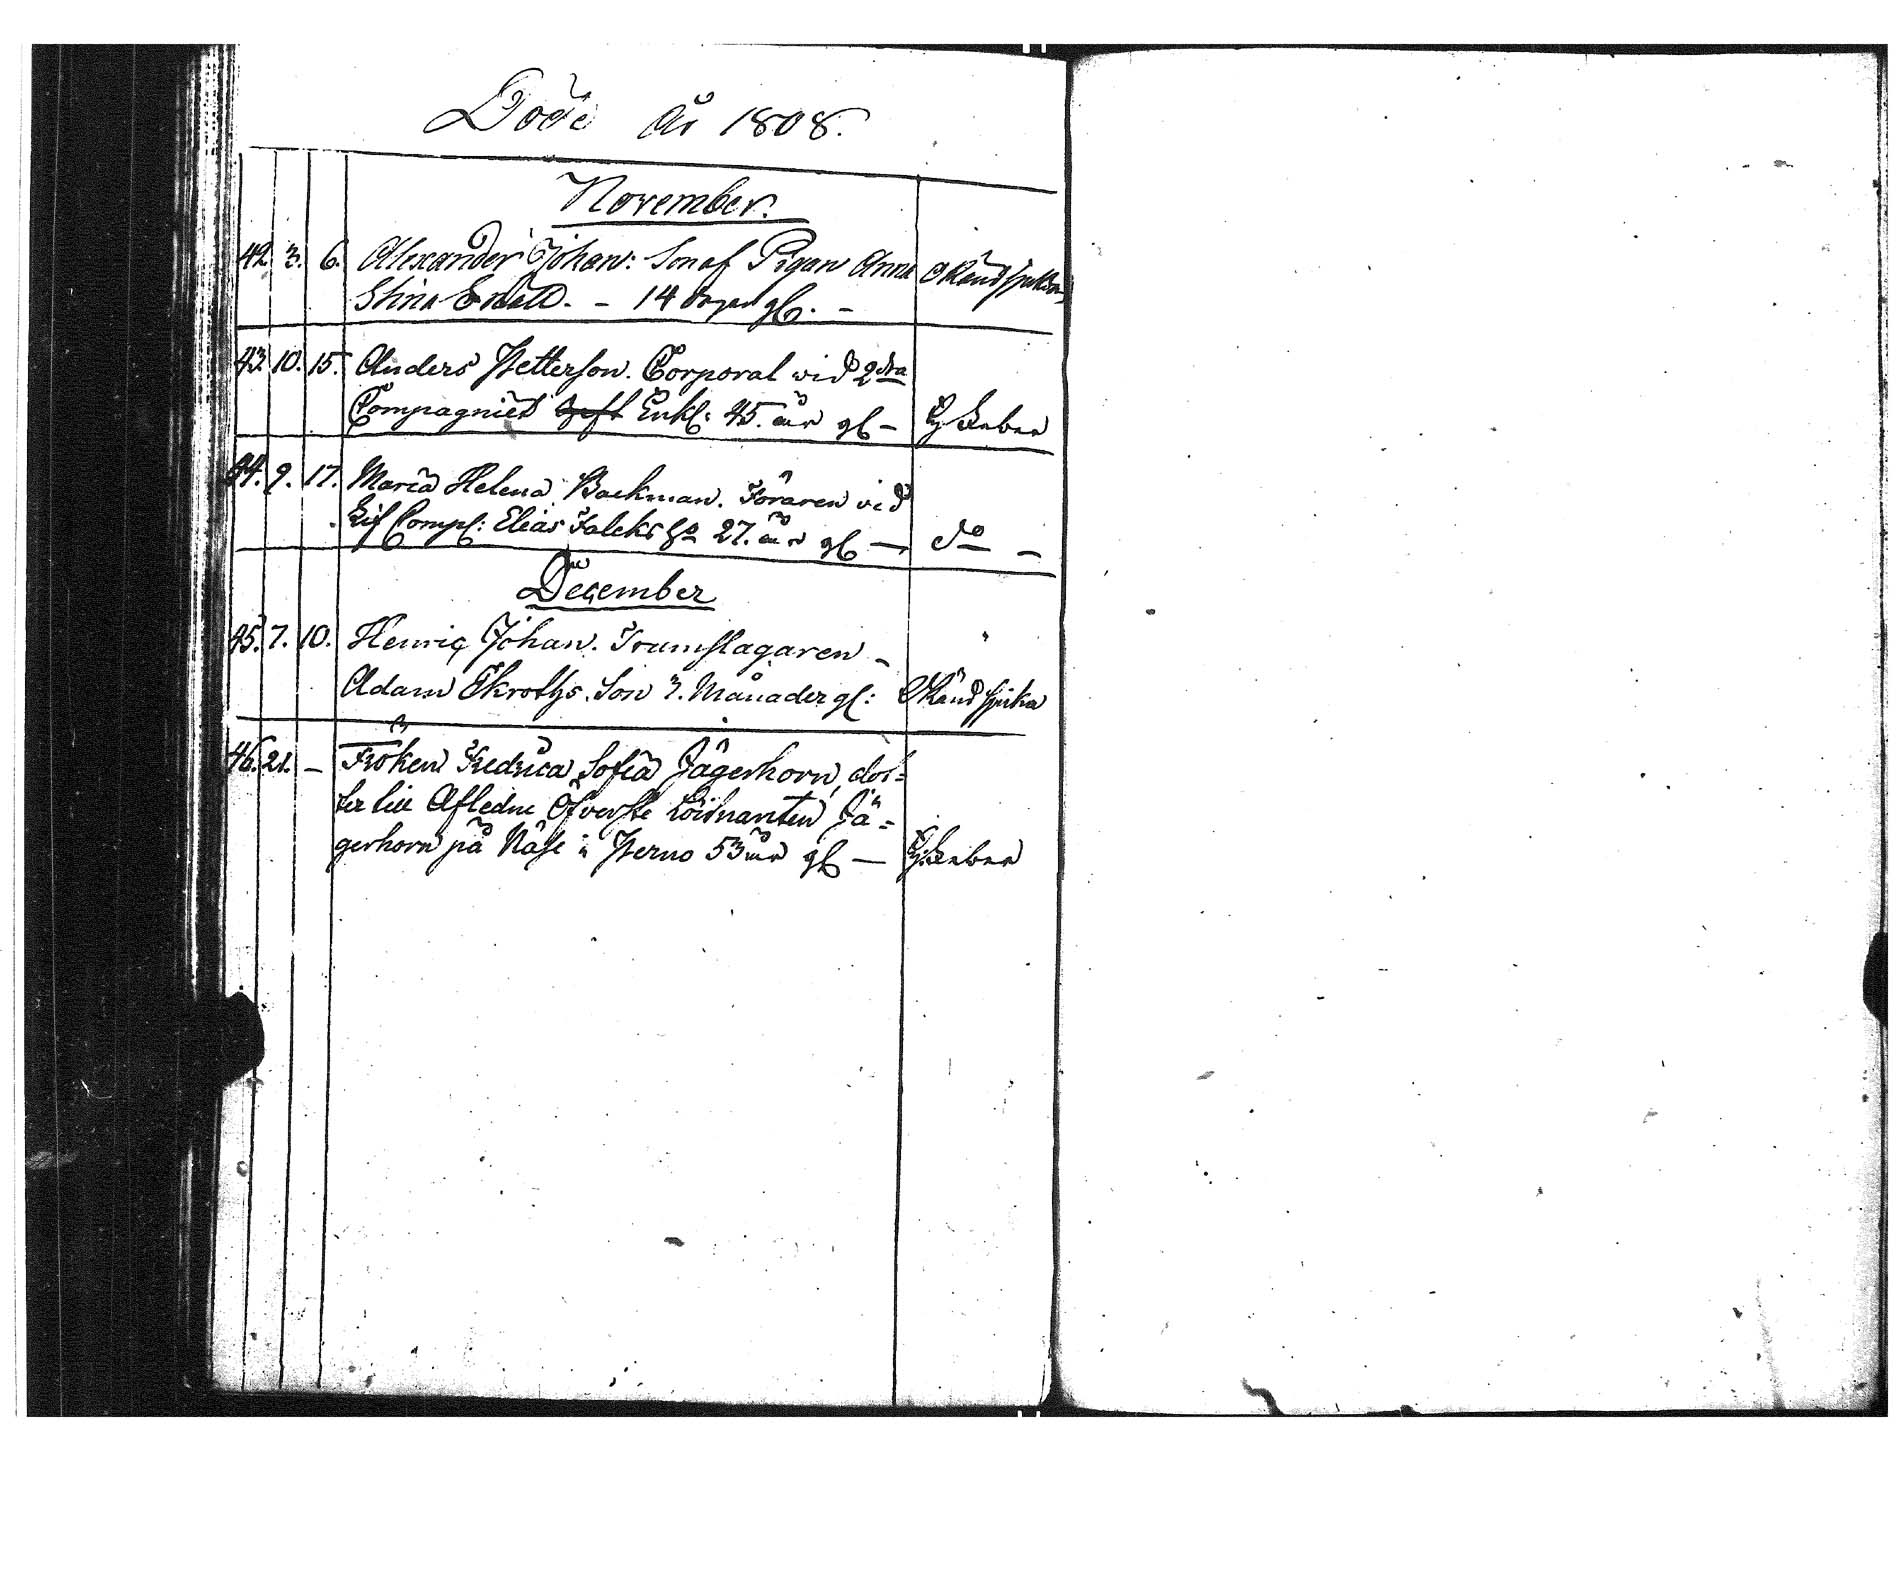 Döde År 1808.
November.
42. 3. 6. Alexander Johan: Son af Pigan Anna
Stina - 14 dagar gl. -
43. 10. 15. Anders Petterson. Corporal vid 2dra
Compagniet Enkl: 45. år gl -
44. 9. 17. Maria Helena Backman. Föraren vid
Lif Comp: Elias Falcks 27. år gl — do -
December
45. 7. 10. Henric Johan. Trumslagaren -
Adam Ekroths. Son 3. Månader gl: Okänd sjuka
46. 21. - Fröken Fredrica Sofia Jägerhorn, dot=
ter till Afledne Öfverste Löitnanten Jä=
gerhorn på Näse i Perno 53 år gl —